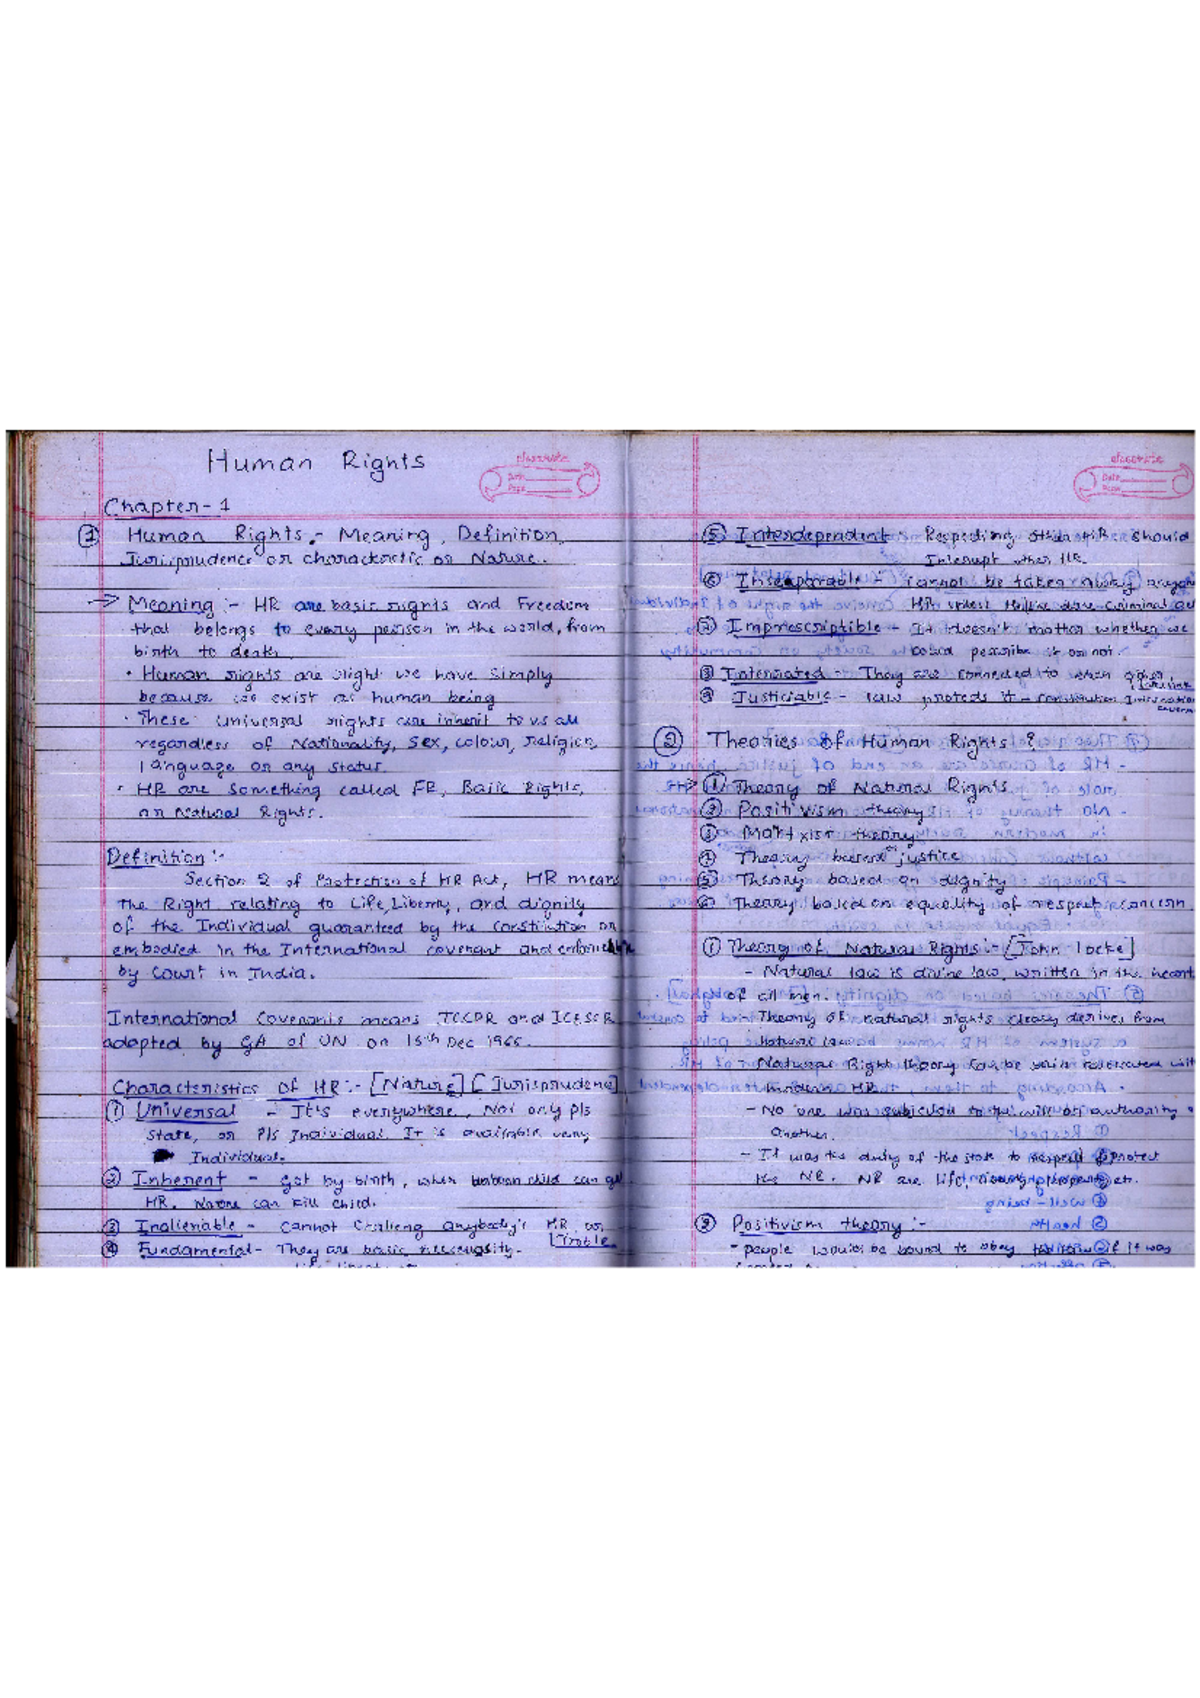 Human Rights
classmate
Date
Page
Chapter-1
① Human Rights - Meaning, Definition,
Jurisprudence or charactoristic or Nature.
→ Meaning :- HR are basic rights and Freedom
that belongs to every person in the world, from
birth to death
· Human rights are right we have simply
because we exist as human being
· These universal rights are inherit to us all
regardless of Nationality, Sex, colour, religion,
language or any status.
· HR are something called FR, Basic Rights,
or Natural Rights.
Definition :-
Section 2 of Protection of HR Act, HR means
the Right relating to Life, Liberty, and dignity
of the Individual guaranteed by the constitution or
embodied in the International covenant and enforceable
by Court in India.
International Covenants means ICCPR and ICESCR
adopted by GA of UN on 16th Dec 1966.
Characteristics of HR :- [Nature] [Jurisprudence]
① Universal - It's everywhere, Not only P/s
State, or P/s Individual. It is available very
Individual.
② Inherent - Got by birth, when unborn child can get
HR. No one can kill child.
③ Inalienable - Cannot Challeng anybody's HR or
④ Fundamental - They are basic necessity.
classmate
Date
Page
⑤ Interdependent Respecting other HR should
Interupt other HR.
⑥ Inseaparable - Cannot be taken away anyone
HR unless he/she done criminal act
⑦ Imprescriptible - It doesn't matter whether we
could perscribe it or not.
⑧ Interrated - They are connected to each other.
⑨ Justiciable - law protects it - constitution
② Theories of Human Rights ?
→ ① Theory of Natural Rights.
② Positivism theory
③ Martxist theory
④ Theory based on justice
⑤ Theory based on dignity
⑥ Theory based on equality of respect & concern
① Theory of Natural Rights :- [John Locke]
- Natural law is divine law, written in the heart
of all men.
- Theory of natural rights cleary derives from
Natural law
- Natural Right theory can be said
modern HR
- No one was subjected to the will or authority of
Another.
- It was the duty of the state to respect & protect
the NR. NR are life, liberty, property, etc.
② Positivism theory :-
- people would be bound to obey the law if it was